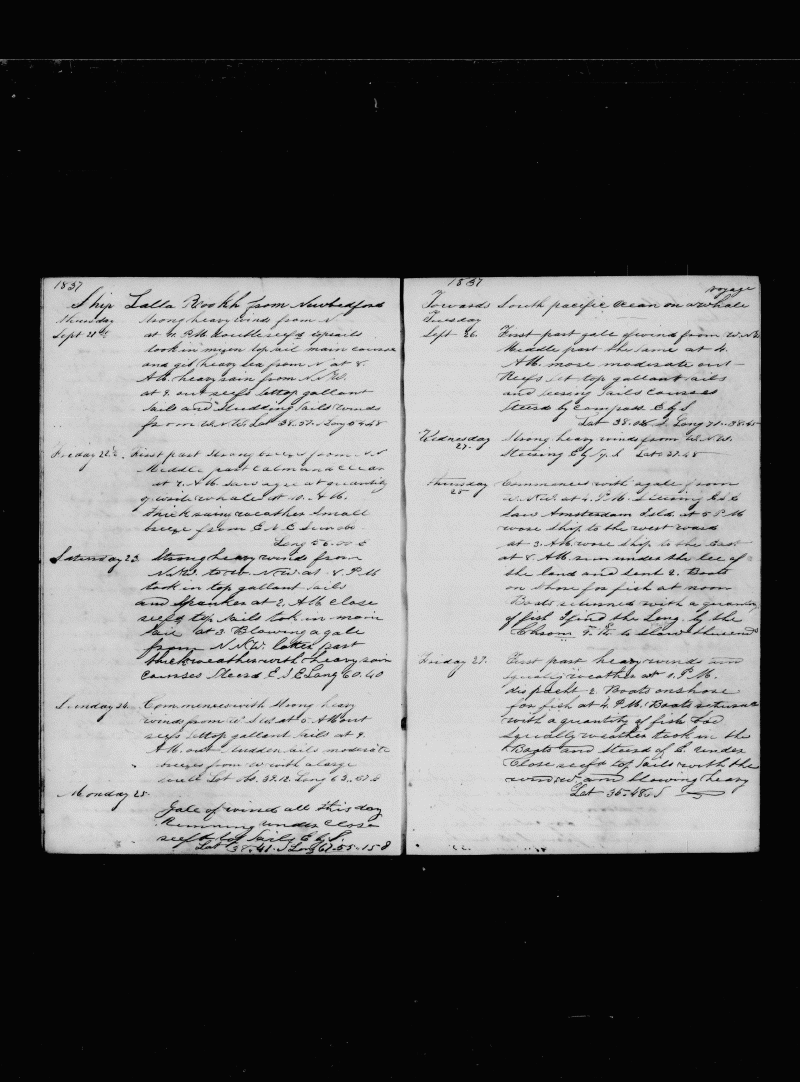 1837
Ship Lalla Rookh from Newbedford
Thursday Strong heavy winds from N
Sept 21st at 4 P.M. double reefd topsails
took in mizen topsail main course
and gib heavy sea from N at 8.
A.M. heavy rain from N.N.W.
at 9. out reefs set top gallant
sails and studding sails winds
from W.N.W. Lat 38.37. Long 54.48
Friday 22d. First part strong breeze from
Middle part calm and clear
at 7. A.M. saw a quantity
of whale at 10. A.M.
thick rainy weather small
breeze from E.N.E
Long 56.00 E
Saturday 23. Strong heavy winds from
N.W. to W.N.W. at 8 P.M
took in top gallant sails
and spanker at 2. A.M. close
reefd top sails took in main
sail at 3 Blowing a gale
from N.N.W. latter part
thick weather with heavy rain
courses Steerd E.S.E Long 60.40
Sunday 24. Commences with strong heavy
winds from W.S.W. at 5 A.M out
reefs set top gallant sails at 9.
A.M. out studden sails moderate
breezes from W with a large
swell Lat 39.12 Long 63.57 E
Monday 25.
Gale of wind all this day
Running under close
reefd top sails E by S.
Lat 38.41. S Long 67.55.15 E
1837
voyage
Towards South pacific Ocean on a whale
Tuesday
Sept 26. First part gale of wind from W.N.W
Middle part the same at 4.
A.M. more moderate out
Reefs set top gallant sails
and courses
Steerd by compass E by S
Lat 38.08 S Long 71..38.45
Wednesday Strong heavy winds from W.N.W.
27. Steering E by S. Lat 37.48
Thursday Commences with a gale from
28 W.N.W. at 4. P.M. E by S
saw Amsterdam Isld. at 5 P.M
wore ship to the westward
at 3. A.M. wore ship to the East
at 8 A.M. run under the lee of
the land and sent 2. Boats
on shore for fish at noon
Boats returned with a quantity
of fish I find the Long. by the
Chrom. to
Friday 29. First part heavy winds and
squally weather at 1. P.M.
2 Boats onshore
for fish at 4. P.M. Boats returned
with a quantity of fish
squally weather took in the
Boats and Steerd of E under
Close reefd top sails with the
and blowing heavy
Lat 36.48. S